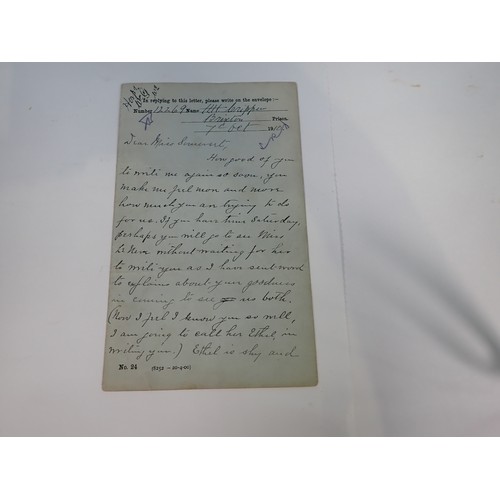 In replying to this letter, please write on the envelope:—
Number 12269 Name HH Crippen
Brixton Prison
7th Oct 191
Dear Miss Somerset,
How good of you
to write me again so soon, you
make me feel more and more
how much you are trying to do
for us. If you have time Saturday,
perhaps you will go to see Miss
Le Neve without waiting for her
to write you as I have sent word
to explain about your goodness
in coming to see us both.
(Now I feel I know you so well,
I am going to call her Ethel, in
writing you.) Ethel is shy and
No. 24 (6252 — 22-4-00)